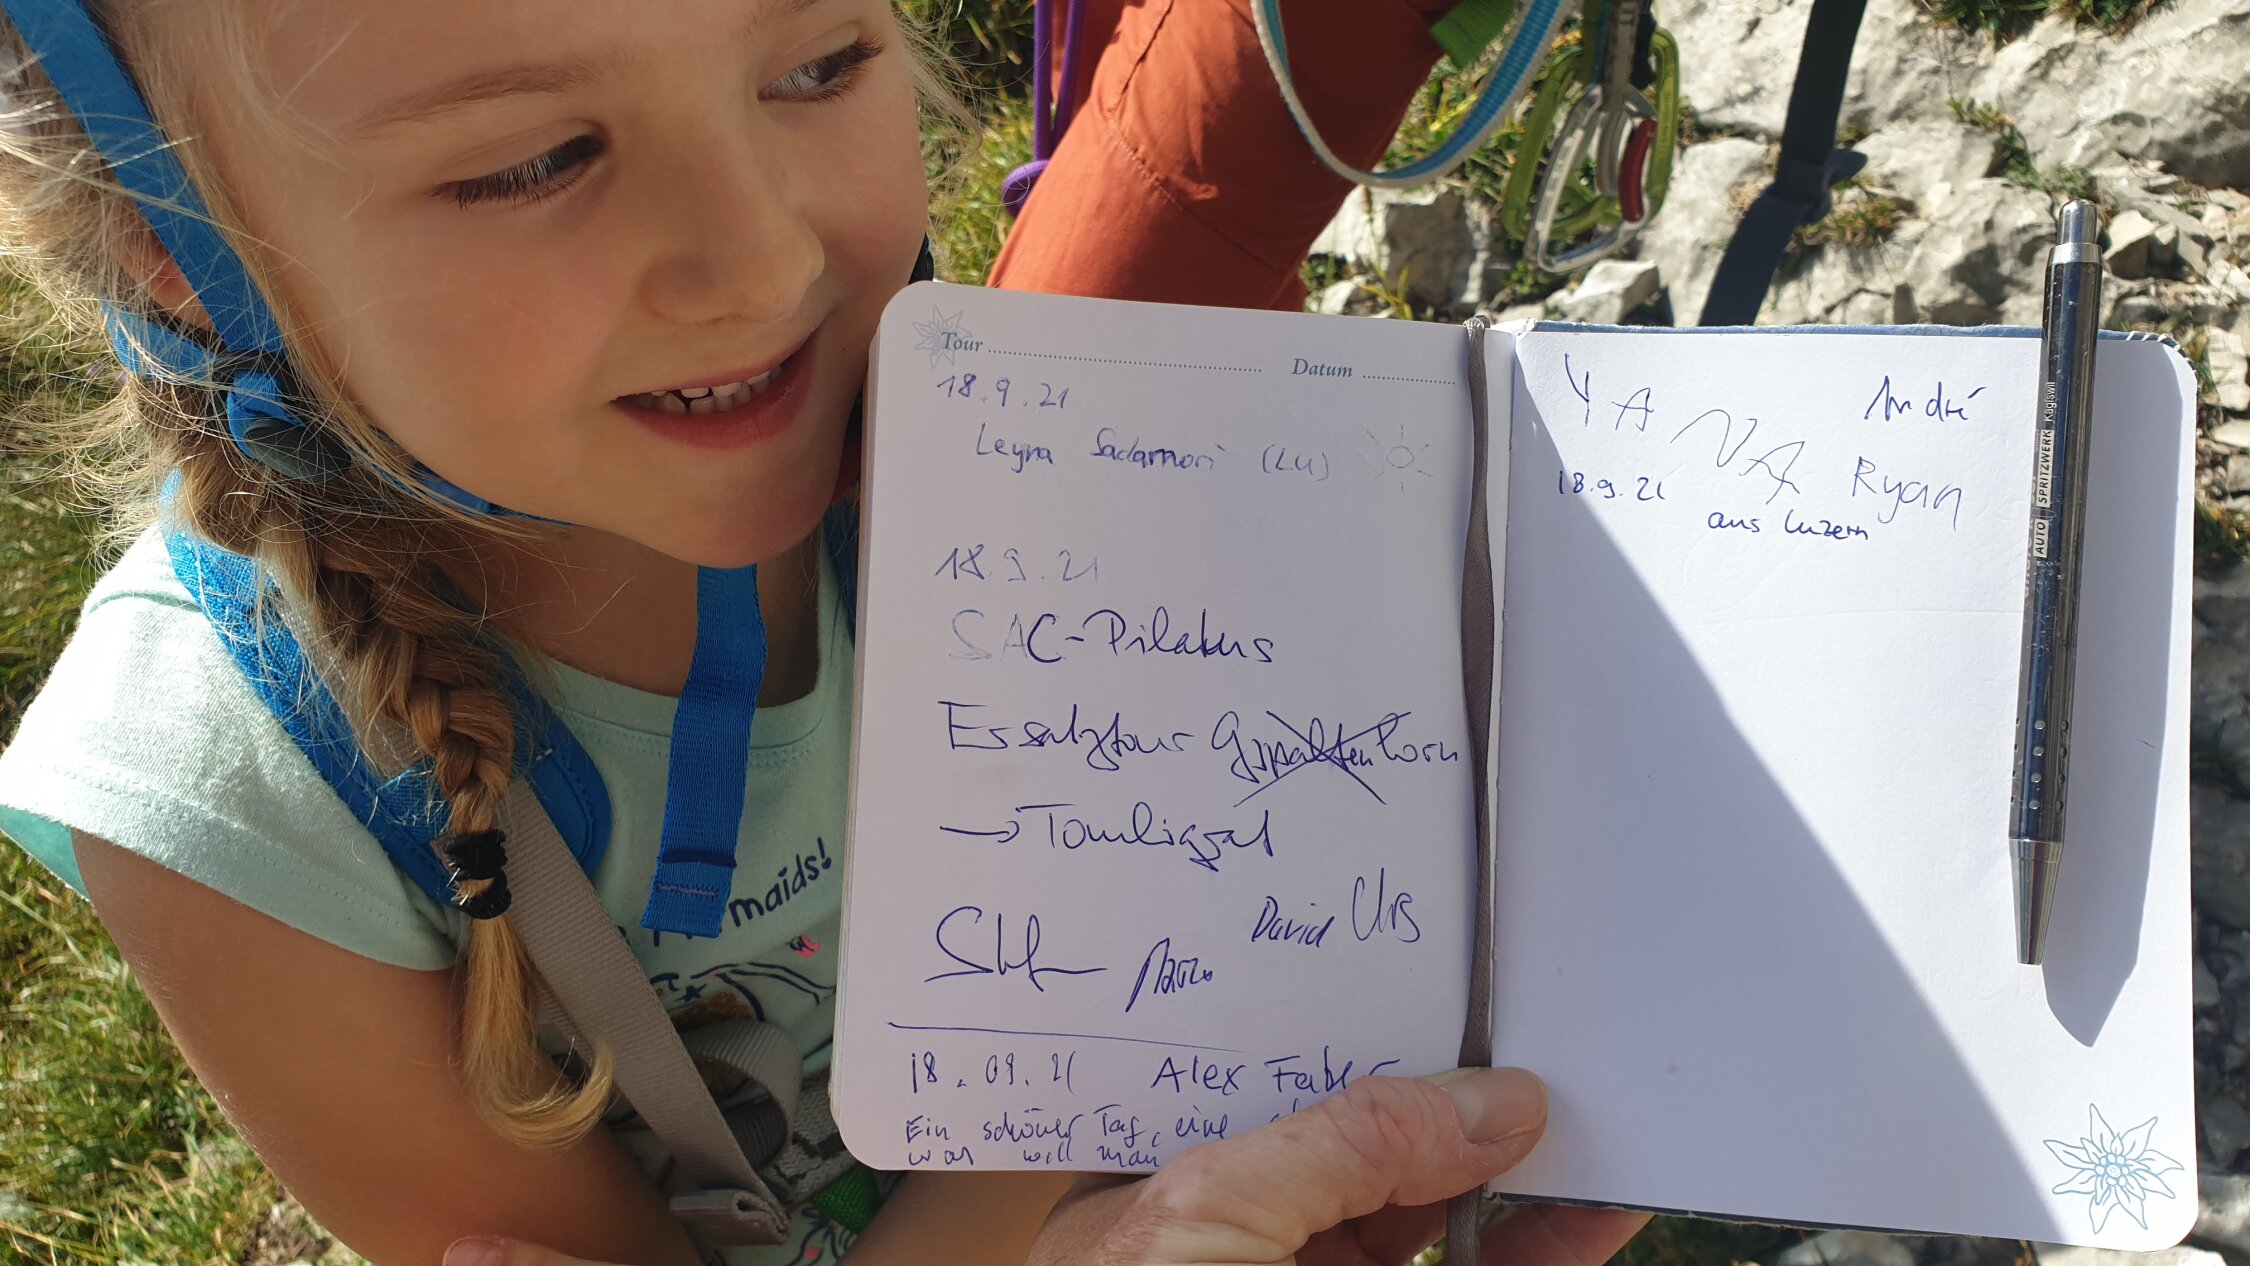 Tour Datum
18.9.21
Leyna Sadamori (LU)
18.9.21
SAC-Pilatus
Ersatztour Gspaltenhorn
→ Tomligrat
Marco David Urs
18.09.21 Alex Faber
Ein schöner Tag, eine
was will man
YANA
André
Ryan
18.9.21
aus Luzern
AUTO SPRITZWERK Kägiswil
maids!